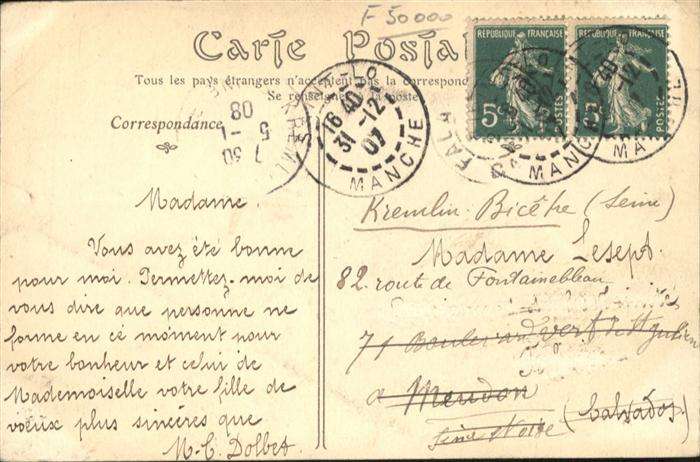 F 50000
Carte Postale
Tous les pays étrangers n'acceptent pas la correspond
Se renseigner à la poste
Correspondance
Madame.
Vous avez été bonne
pour moi. Permettez-moi de
vous dire que personne ne
forme en cé moment pour
votre bonheur et celui de
Mademoiselle votre fille de
voeux plus sincères que
M-C. Dolbet
RÉPUBLIQUE FRANÇAISE
5c
POSTES
RÉPUBLIQUE FRANÇAISE
POSTES
16 40
31 -12
07
MANCHE
MANCHE
MANCHE
7 30
5 -1
08
Kremlin-Bicêtre (Seine)
Madame Lesept.
82. route de Fontainebleau
71 Boulevard
à Meudon
(Calvados)
Seine et Oise